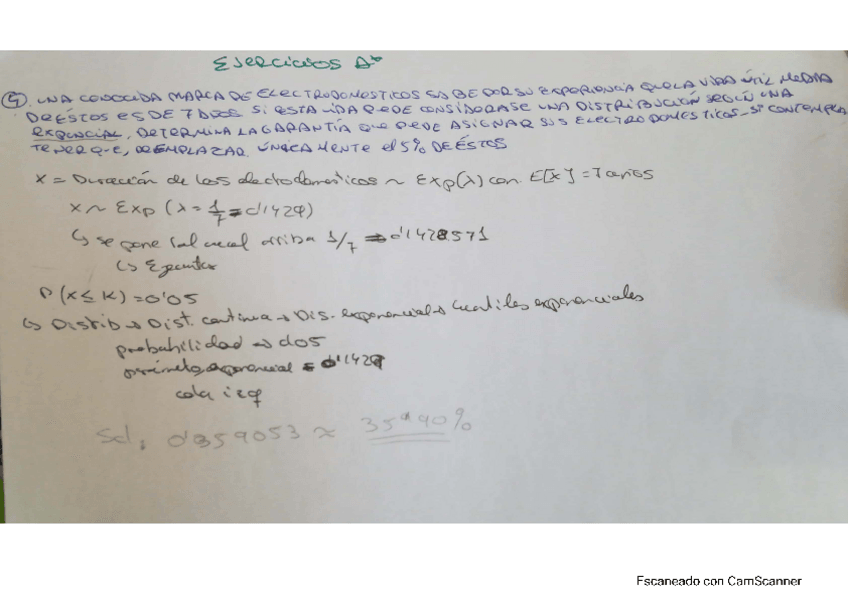 EJERCICIOS
④. UNA CONOCIDA MARCA DE ELECTRODOMESTICOS SABE POR SU EXPERIENCIA QUE LA VIDA ÚTIL MEDIA
DE ÉSTOS ES DE 7 AÑOS. SI ESTA VIDA PUEDE CONSIDERASE UNA DISTRIBUCIÓN SEGÚN UNA
EXPONCIAL, DETERMINA LA GARANTÍA QUE PUEDE ASIGNAR SUS ELECTRODOMESTICOS SI CONTEMPLA
TENER QUE, REMPLAZAR ÚNICAMENTE el 5% DE ÉSTOS
X = Duración de los electrodomésticos ~ Exp(λ) con E[X] = 7 años
X ~ Exp (λ = 1/7 = 0'1429)
↳ se pone tal cual arriba 1/7 ⇒ 0'1428571
↳ Ejecutar
P(X ≤ K) = 0'05
↳ Distrib → Dist. continua → Dis. exponencial → Cuantiles exponenciales
probabilidad → 0'05
parámetro exponencial = 0'1429
cola izq
Sol: 0'359053 ≈ 35'90%
Escaneado con CamScanner